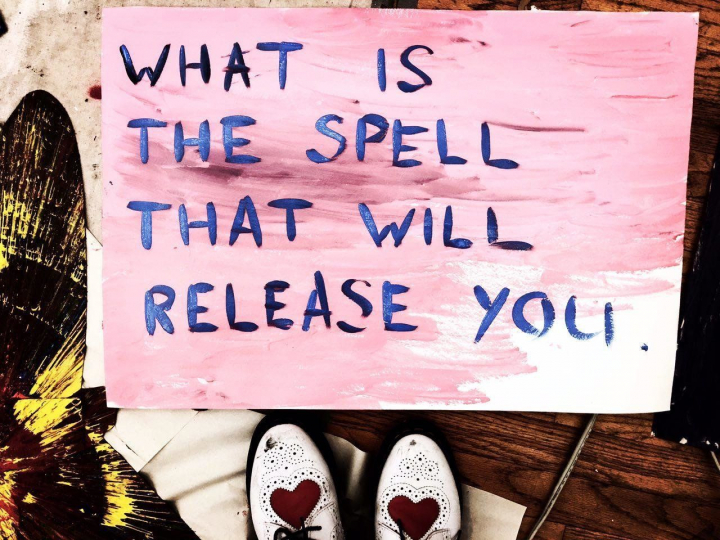 WHAT IS
THE SPELL
THAT WILL
RELEASE YOU.